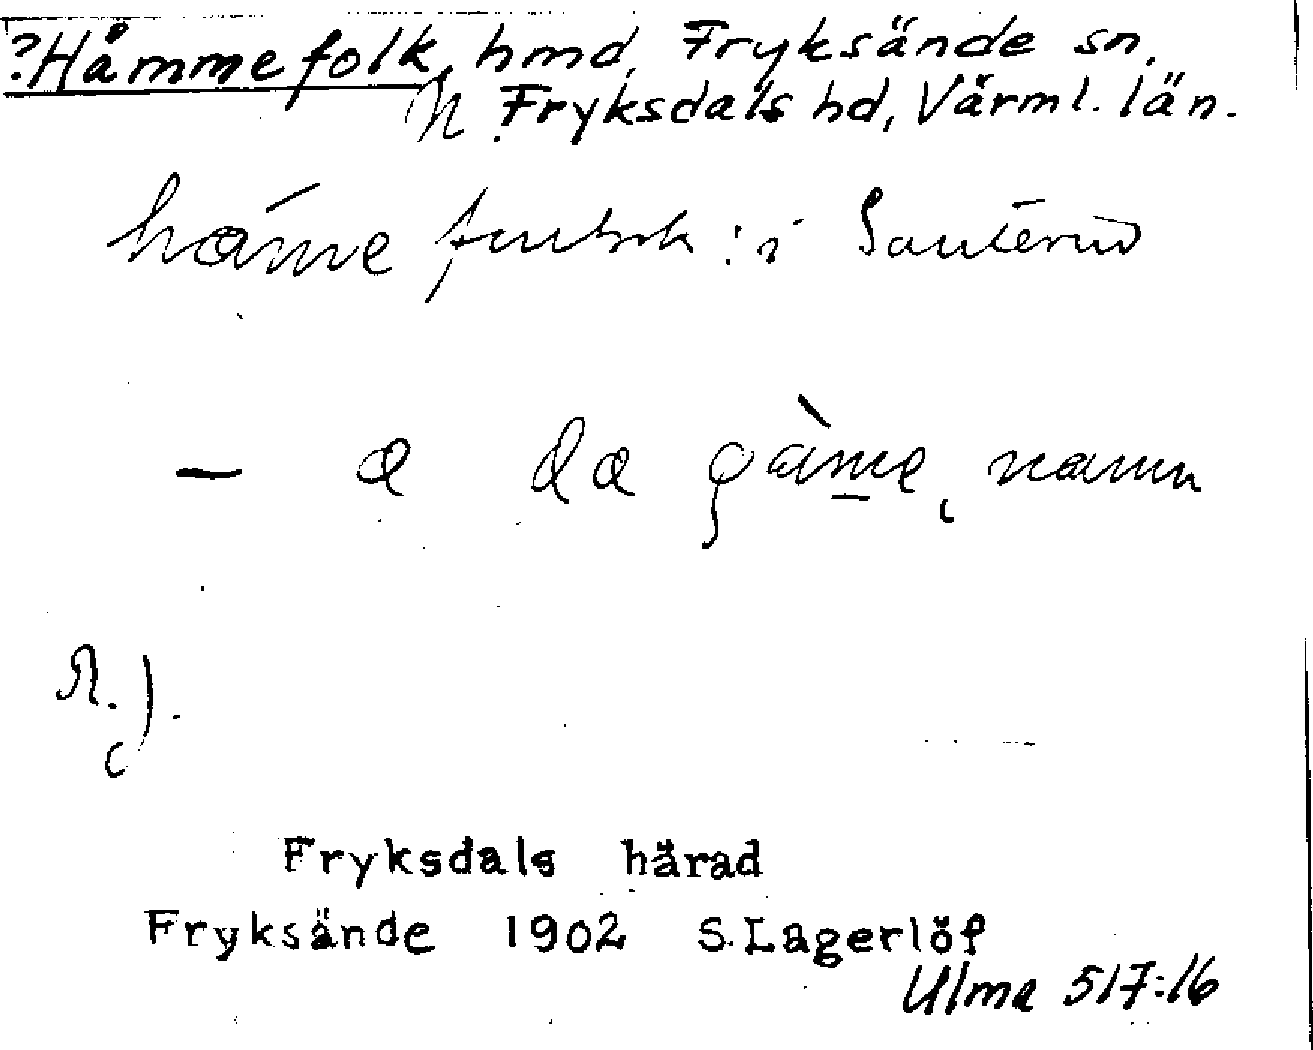 ?Håmmefolk, hmd, Fryksände sn.
N. Fryksdals hd, Värml. län.
i
— a da gàme, namn
R.).
Fryksdals härad
Fryksände 1902 S.Lagerlöf
Ulma 517:16